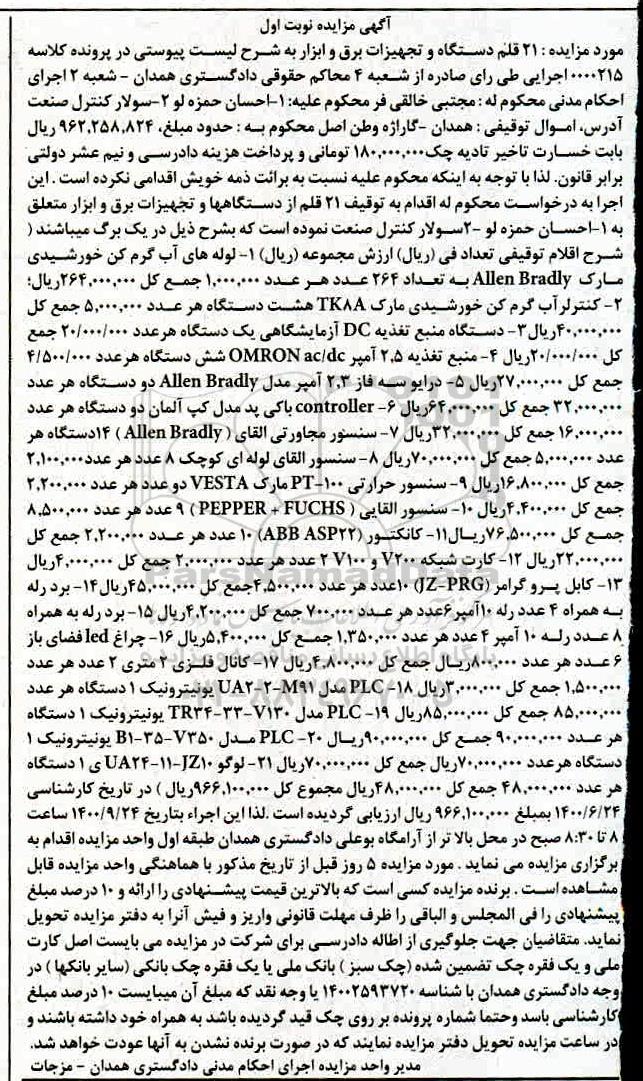 آگهی مزایده نوبت اول
مورد مزایده : ۲۱ قلم دستگاه و تجهیزات برق و ابزار به شرح لیست پیوستی در پرونده کلاسه
۰۰۰۰۲۱۵ اجرایی طی رای صادره از شعبه ۴ محاکم حقوقی دادگستری همدان - شعبه ۲ اجرای
احکام مدنی محکوم له : مجتبی خالقی فر محکوم علیه: ۱-احسان حمزه لو ۲-سولار کنترل صنعت
آدرس، اموال توقیفی : همدان -گاراژه وطن اصل محکوم به : حدود مبلغ، ۹۶۲,۲۵۸,۸۲۴ ریال
بابت خسارت تاخیر تادیه چک۱۸۰,۰۰۰,۰۰۰ تومانی و پرداخت هزینه دادرسی و نیم عشر دولتی
برابر قانون. لذا با توجه به اینکه محکوم علیه نسبت به برائت ذمه خویش اقدامی نکرده است . این
اجرا به درخواست محکوم له اقدام به توقیف ۲۱ قلم از دستگاهها و تجهیزات برق و ابزار متعلق
به ۱-احسان حمزه لو -۲سولار کنترل صنعت نموده است که بشرح ذیل در یک برگ میباشند (
شرح اقلام توقیفی تعداد فی (ریال) ارزش مجموعه (ریال) ۱- لوله های آب گرم کن خورشیدی
مارک Allen Bradly به تعداد ۲۶۴ عدد هر عدد ۱,۰۰۰,۰۰۰ جمع کل ۲۶۴,۰۰۰,۰۰۰ریال؛
۲- کنترلر آب گرم کن خورشیدی مارک TK۸A هشت دستگاه هر عدد ۵,۰۰۰,۰۰۰ جمع کل
۴۰,۰۰۰,۰۰۰ریال۳- دستگاه منبع تغذیه DC آزمایشگاهی یک دستگاه هرعدد ۲۰/۰۰۰/۰۰۰ جمع
کل ۲۰/۰۰۰/۰۰۰ریال ۴- منبع تغذیه ۲,۵ آمپر OMRON ac/dc شش دستگاه هرعدد ۴/۵۰۰/۰۰۰
جمع کل ۲۷,۰۰۰,۰۰۰ریال ۵- درایو سه فاز ۲,۳ آمپر مدل Allen Bradly دو دستگاه هر عدد
۳۲,۰۰۰,۰۰۰ جمع کل ۶۴,۰۰۰,۰۰۰ریال ۶- controller باکی پد مدل کپ آلمان دو دستگاه هر عدد
۱۶,۰۰۰,۰۰۰ جمع کل ۳۲,۰۰۰,۰۰۰ریال ۷- سنسور مجاورتی القای ( Allen Bradly ) ۱۴دستگاه هر
عدد ۵,۰۰۰,۰۰۰ جمع کل ۷۰,۰۰۰,۰۰۰ریال ۸- سنسور القای لوله ای کوچک ۸ عدد هر عدد۲,۱۰۰,۰۰۰
جمع کل ۱۶,۸۰۰,۰۰۰ریال ۹- سنسور حرارتی PT-۱۰۰ مارک VESTA دو عدد هر عدد ۲,۲۰۰,۰۰۰
جمع کل ۴,۴۰۰,۰۰۰ریال ۱۰- سنسور القایی ( PEPPER + FUCHS ) ۹ عدد هر عدد ۸,۵۰۰,۰۰۰
جمع کل ۷۶,۵۰۰,۰۰۰ریال۱۱- کانکتور (ABB ASP۲۲) ۱۰ عدد هر عدد ۲,۲۰۰,۰۰۰ جمع کل
۲۲,۰۰۰,۰۰۰ریال ۱۲- کارت شبکه V۲۰۰ و V۱۰۰ ۲ عدد هر عدد ۲,۰۰۰,۰۰۰ جمع کل ۴,۰۰۰,۰۰۰ریال
۱۳- کابل پروگرامر (JZ-PRG) ۱۰عدد هر عدد ۴,۵۰۰,۰۰۰جمع کل ۴۵,۰۰۰,۰۰۰ریال۱۴- برد رله
به همراه ۴ عدد رله ۱۰آمپر۶عدد هر عدد ۷۰۰,۰۰۰ جمع کل ۴,۲۰۰,۰۰۰ریال ۱۵- برد رله به همراه
۸ عدد رله ۱۰ آمپر ۴ عدد هر عدد ۱,۳۵۰,۰۰۰ جمع کل ۵,۴۰۰,۰۰۰ریال ۱۶- چراغ led فضای باز
۶ عدد هر عدد ۸۰۰,۰۰۰ریال جمع کل ۴,۸۰۰,۰۰۰ریال ۱۷- کانال فلزی ۲ متری ۲ عدد هر عدد
۱,۵۰۰,۰۰۰ جمع کل ۳,۰۰۰,۰۰۰ریال ۱۸- PLC مدل UA۲-۲-M۹۱ یونیترونیک ۱ دستگاه هر عدد
۸۵,۰۰۰,۰۰۰ جمع کل ۸۵,۰۰۰,۰۰۰ریال ۱۹- PLC مدل TR۳۴-۳۳-V۱۳۰ یونیترونیک ۱ دستگاه
هر عدد ۹۰,۰۰۰,۰۰۰ جمع کل ۹۰,۰۰۰,۰۰۰ریال ۲۰- PLC مدل B۱-۳۵-V۳۵۰ یونیترونیک ۱
دستگاه هر عدد ۷۰,۰۰۰,۰۰۰ریال جمع کل ۷۰,۰۰۰,۰۰۰ریال ۲۱- لوگو UA۲۴-۱۱-JZ۱۰ ی ۱ دستگاه
هر عدد ۴۸,۰۰۰,۰۰۰ جمع کل ۴۸,۰۰۰,۰۰۰ریال مجموع کل ۹۶۶,۱۰۰,۰۰۰ریال ) در تاریخ کارشناسی
۱۴۰۰/۶/۲۴ بمبلغ ۹۶۶,۱۰۰,۰۰۰ ریال ارزیابی گردیده است .لذا این اجراء بتاریخ ۱۴۰۰/۹/۲۴ ساعت
۸ تا ۸:۳۰ صبح در محل بالا تر از آرامگاه بوعلی دادگستری همدان طبقه اول واحد مزایده اقدام به
برگزاری مزایده می نماید . مورد مزایده ۵ روز قبل از تاریخ مذکور با هماهنگی واحد مزایده قابل
مشاهده است . برنده مزایده کسی است که بالاترین قیمت پیشنهادی را ارائه و ۱۰ درصد مبلغ
پیشنهادی را فی المجلس و الباقی را ظرف مهلت قانونی واریز و فیش آنرا به دفتر مزایده تحویل
نماید. متقاضیان جهت جلوگیری از اطاله دادرسی برای شرکت در مزایده می بایست اصل کارت
ملی و یک فقره چک تضمین شده (چک سبز ) بانک ملی یا یک فقره چک بانکی (سایر بانکها ) در
وجه دادگستری همدان با شناسه ۱۴۰۰۲۵۹۳۷۲۰ یا وجه نقد که مبلغ آن میبایست ۱۰ درصد مبلغ
کارشناسی باسد وحتما شماره پرونده بر روی چک قید گردیده باشد به همراه خود داشته باشند و
در ساعت مزایده تحویل دفتر مزایده نمایند که در صورت برنده نشدن به آنها عودت خواهد شد.
مدیر واحد مزایده اجرای احکام مدنی دادگستری همدان - مزجات